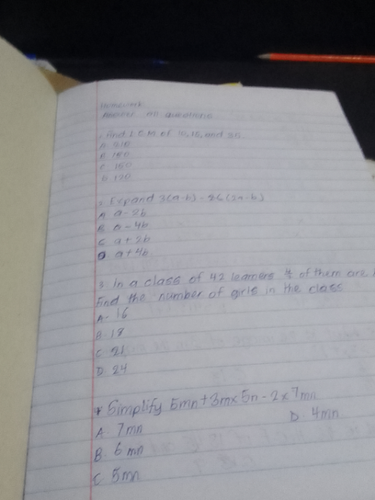 Answer all questions
Find LCM of and 30
A. 210
B. 180
C. 150
D. 120
2. Expand
A. a - 2b
B. a - 4b
C. a + 2b
D. a + 4b
3. In a class of 42 learners of them are
Find the number of girls in the class
A. 16
B. 18
C. 21
D. 24
Simplify 5mn + 3m x 5n - 2 x 7mn
A. 7mn D. 4mn
B. 6mn
C. 5mn